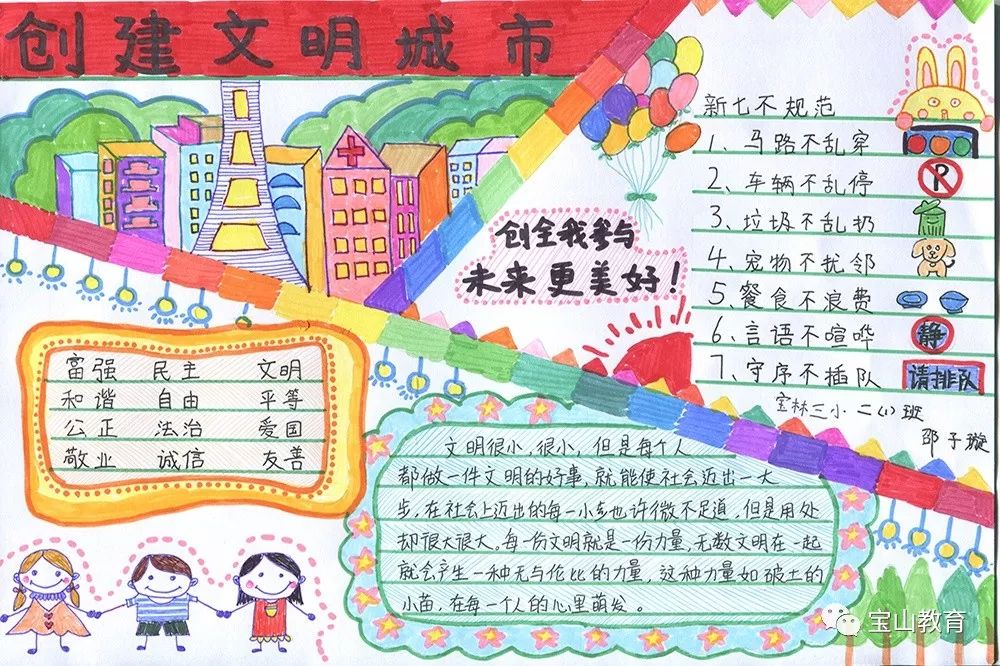 创建文明城市
创全我参与
未来更美好！
新七不规范
1、马路不乱穿
2、车辆不乱停
P
3、垃圾不乱扔
4、宠物不扰邻
5、餐食不浪费
6、言语不喧哗
静
7、守序不插队
请排队
宝林三小 二(1)班
邵子璇
富强 民主 文明
和谐 自由 平等
公正 法治 爱国
敬业 诚信 友善
文明很小，很小，但是每个人
都做一件文明的好事，就能使社会迈出一大
步，在社会上迈出的每一小步也许微不足道，但是用处
却很大很大。每一份文明就是一份力量，无数文明在一起
就会产生一种无与伦比的力量，这种力量如破土的
小苗，在每一个人的心里萌发。
宝山教育